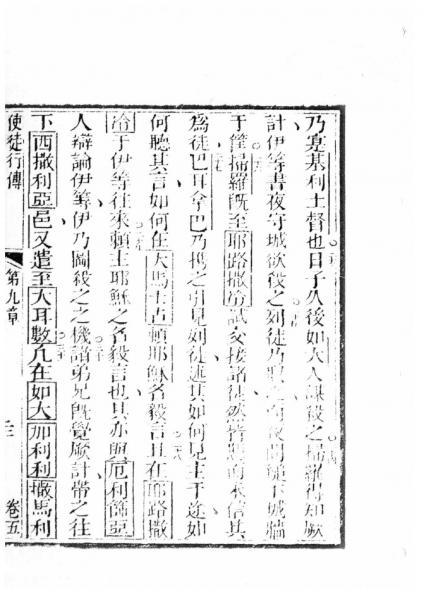 乃寔基利士督也日子久後如大人謀殺之掃羅得知厥
計伊等晝夜守城欲殺之列徒乃 之 夜間縋下城牆
于筐掃羅既至耶路撒冷試交接諸徒然皆 而未信其
為徒巴耳拿巴乃携之引見列徒述其如何見主于途如
何聽其言如何在大馬士古頼耶穌名毅言且在耶路撒
冷于伊等往來頼主耶穌之名毅言也其亦與厄利篩亞
人辯論伊等伊乃圖殺之之機諸弟兄既覺厥計帶之往
下西撒利亞邑又遣至大耳數凡在如大加利利撒馬利
使徒行傳 第九章 三 卷五